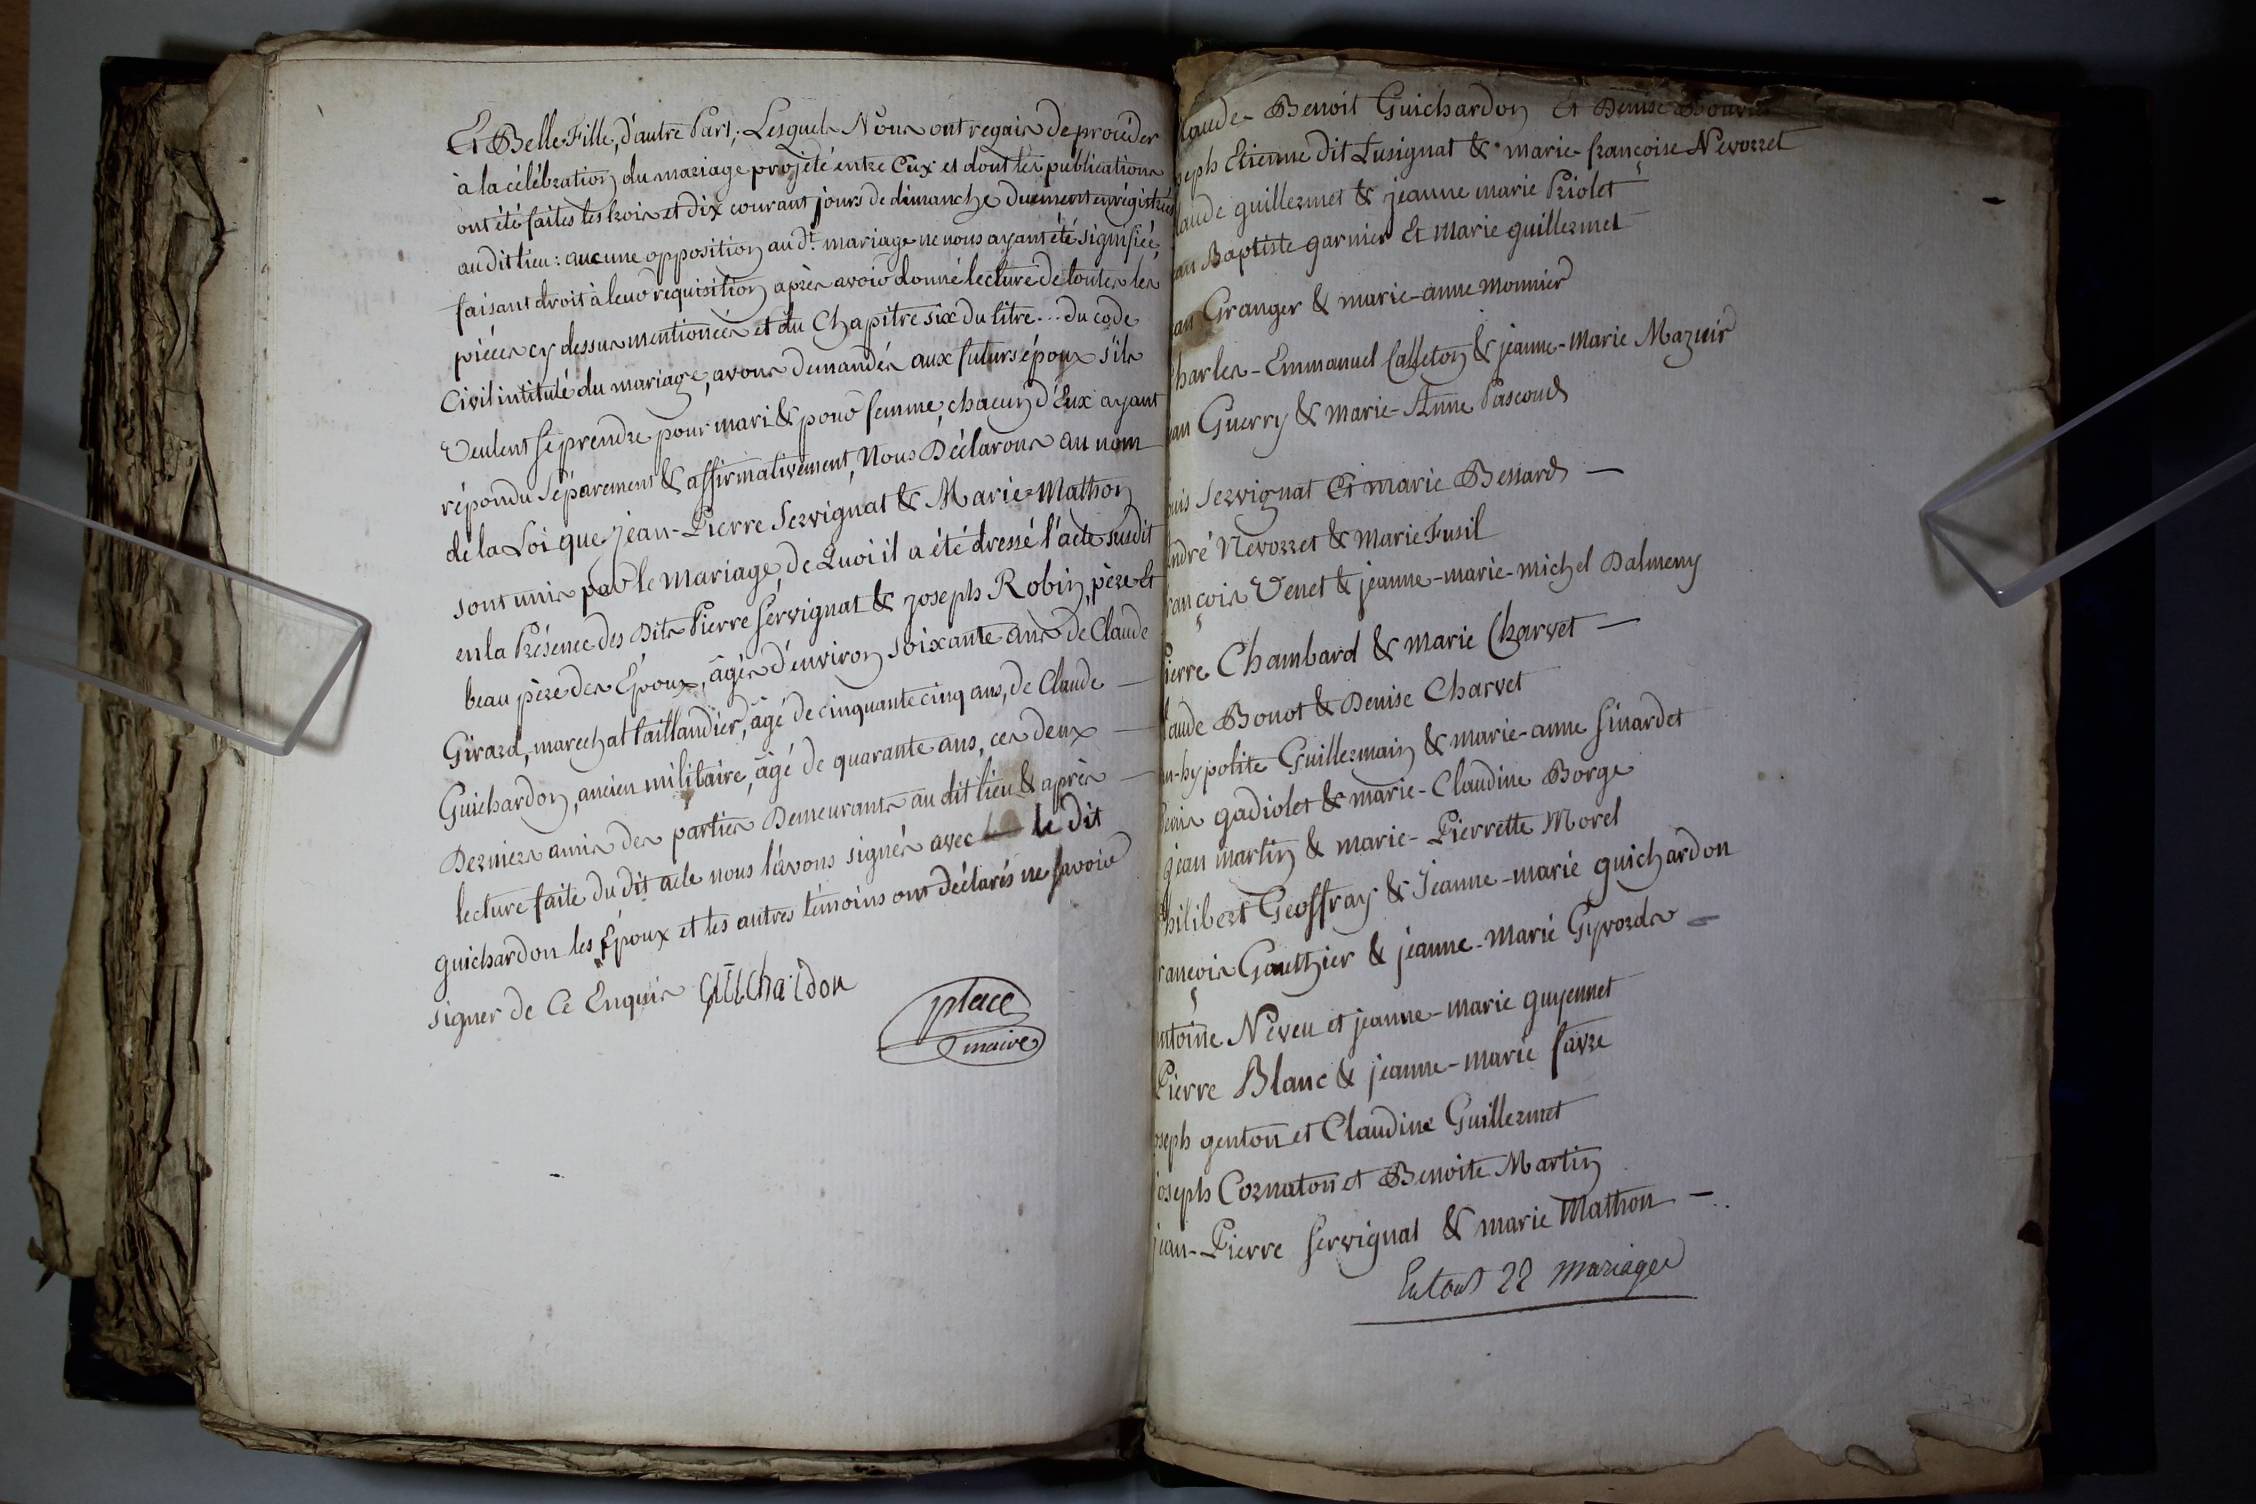 Et Belle Fille, d'autre Part; Lesquels Nous ont requis de procéder
à la célébration du mariage projeté entre Eux et dont les publications
ont été faites les trois et dix courant jours de dimanche duement enrégistrées
au dit lieu: aucune opposition au dt. mariage ne nous ayant été signifiée,
faisant droit à leur requisition après avoir donné lecture de toutes les
pièces cy dessus mentionées et du Chapitre six du titre... du code
Civil intitulé du mariage, avons demandés aux futurs époux s'ils
Veulent se prendre pour mari & pour femme, chacun d'Eux ayant
répondu séparement & affirmativement, Nous Déclarons au nom
de la Loi que jean-Pierre Servignat & Marie-Mathon
sont unis par le mariage, de Quoi il a été dressé l'acte susdit
en la Présence des Dits Pierre Servignat & joseph Robin, père et
beau père des Époux, âgés d'environ soixante ans de Claude
Girard, marechal taillandier, âgé de cinquante cinq ans, de Claude
Guichardon, ancien militaire, âgé de quarante ans, ces deux
Derniers amis des parties Demeurants au dit lieu & après
lecture faite du dit acte nous l'avons signés avec le dit
guichardon les Époux et les autres témoins ont déclarés ne savoir
signer de Ce Enquis Guichardon
place
maire
laude-Benoit Guichardon Et Denise
seph Etienne dit Lusignat & marie-françoise Nevorret
laude guillermet & jeanne marie Priolet
an Baptiste garnier Et Marie guillermet
an Granger & marie-anne monnier
harles-Emmanuel Calleton & jeanne-Marie Mazuir
an Guerry & marie-Anne Pascoud
ouis Servignat Et marie Bessard
ndré Nevorret & Marie Fusil
rançois Venet & jeanne-marie-michel Dalmeny
Pierre Chambard & marie Charvet
laude Bonot & Denise Charvet
n-hypolite Guillermain & marie-anne Sinardet
enis gadiolet & marie-Claudine Borge
jean martin & marie-Pierrette Morel
hilibert Geoffray & Jeanne-marie guichardon
rançois Gauthier & jeanne-Marie Gyvords
ntoine Neveu et jeanne-marie guyennet
Pierre Blanc & jeanne-marie favre
oseph genton et Claudine Guillermet
joseph Cornaton et Benoite Martin
jean-Pierre Servignat & marie Mathon
En tout 22 mariages